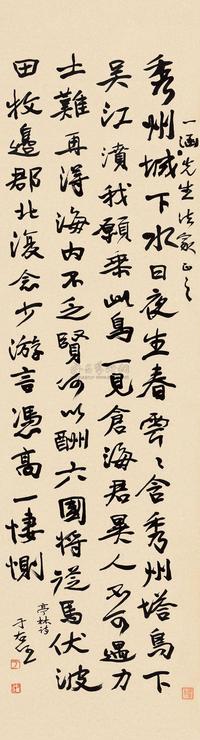 一涵先生法家正之
秀州城下水日夜生春雲〻含秀州塔鳥下
吳江濆我願乘此鳥一見倉海君異人不可遇力
士難再得海內不乏賢何以酬六國將從馬伏波
田牧邊郡北復念少游言憑高一悽惻
亭林詩
于右任